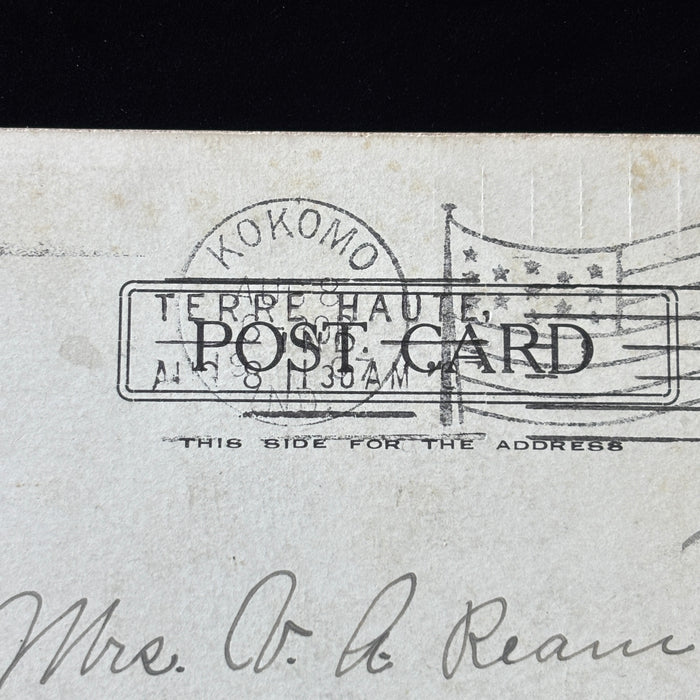 KOKOMO
AUG 8
TERRE HAUTE,
POST CARD
8 11 30 AM
IND.
THIS SIDE FOR THE ADDRESS
Mrs. V. A. Ream